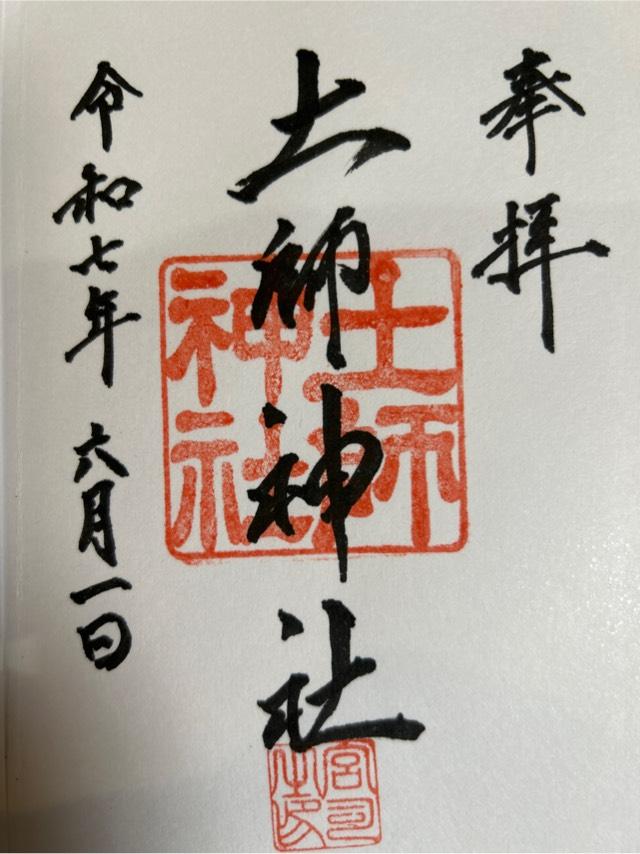 奉拝
土師神社
土師
神社
令和七年 六月一日
宮司
之印